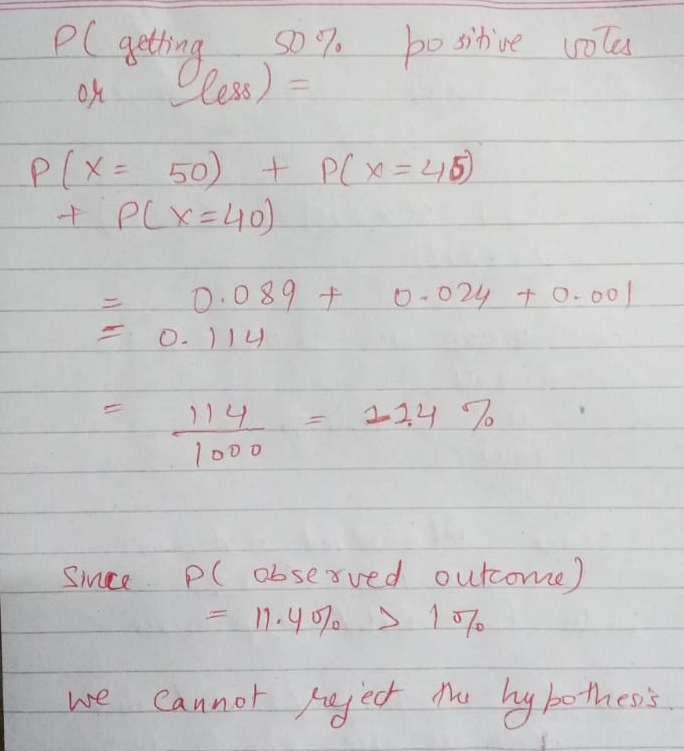 P( getting 50% positive votes
or less) =
P(X= 50) + P(x=45)
+ P(X=40)
= 0.089 + 0.024 + 0.001
= 0.114
= 114/1000 = 11.4 %
Since P( observed outcome)
= 11.4% > 1%
we cannot reject the hypothesis.